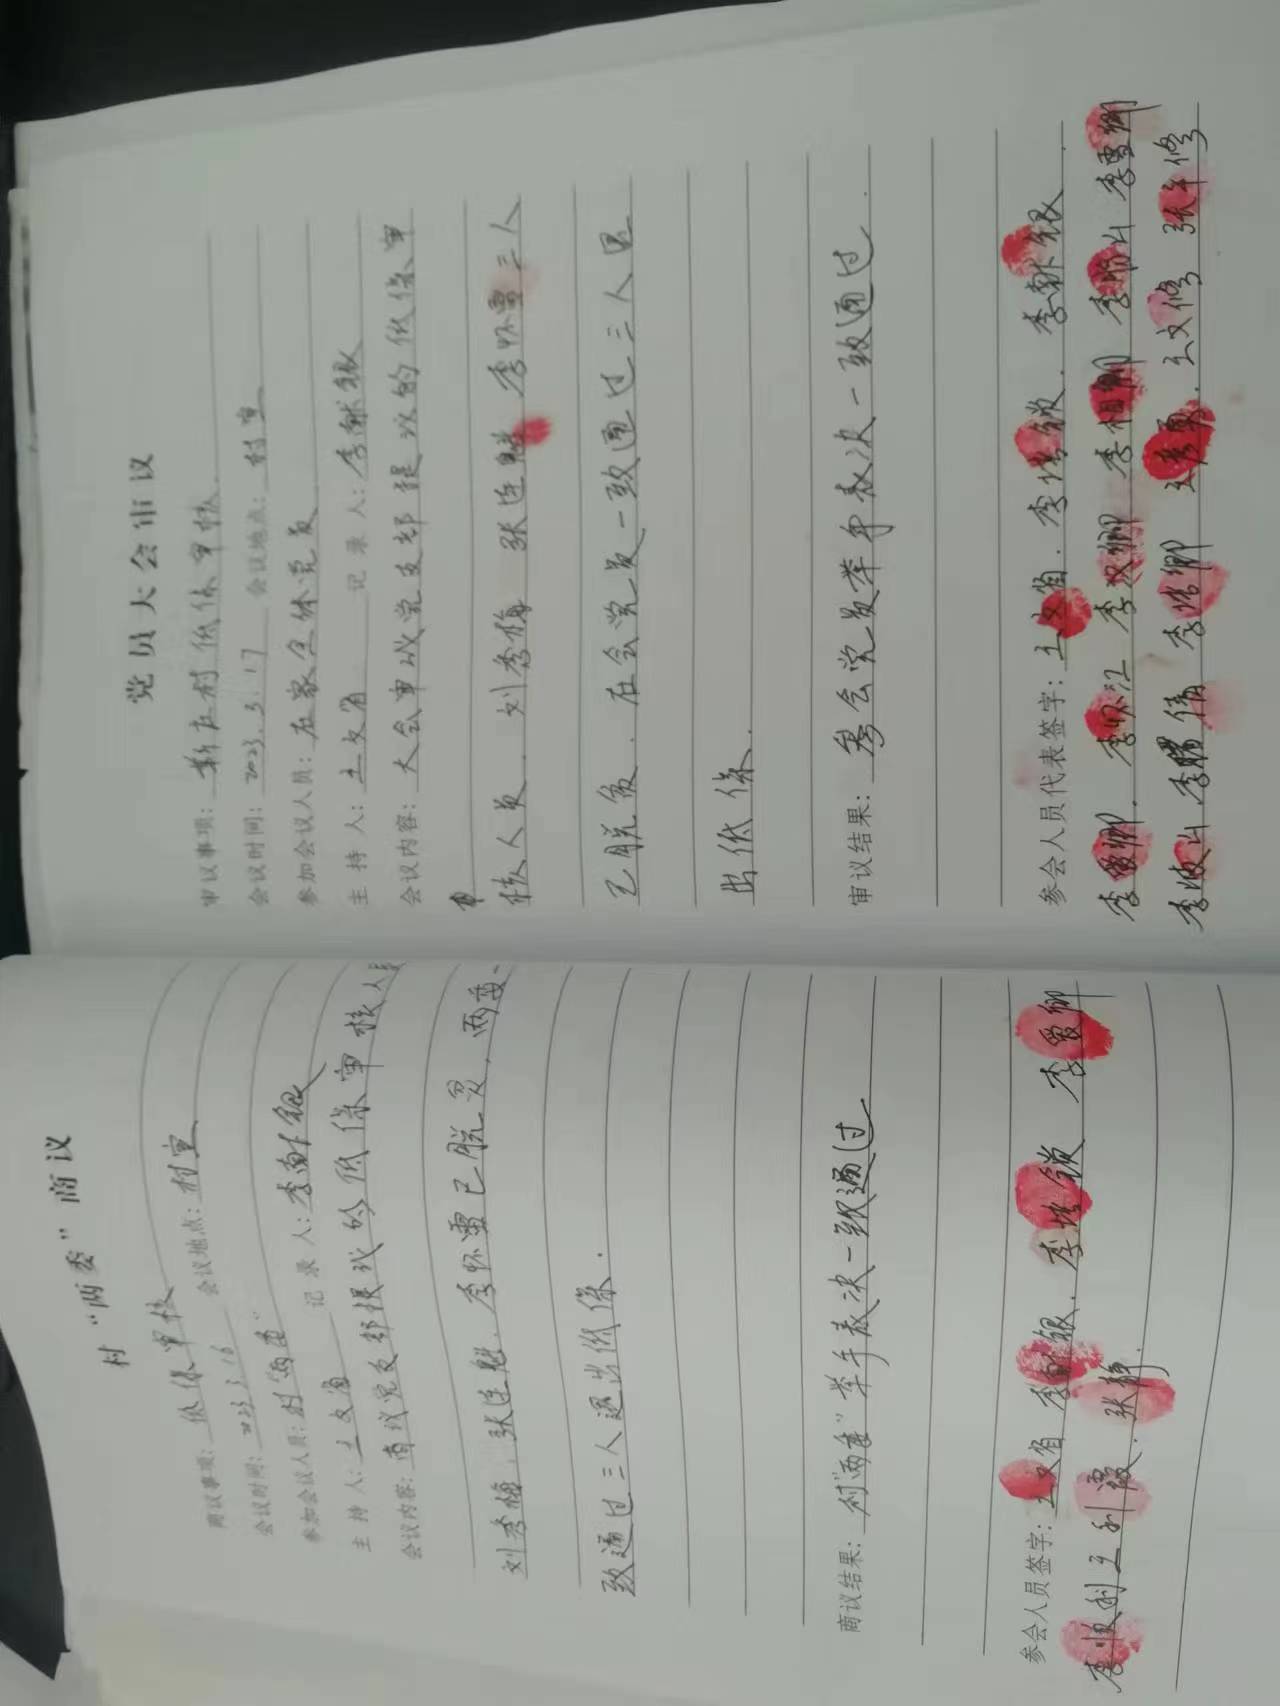 村“两委”商议
商议事项：低保审核
会议时间：2023.3.16 会议地点：村室
参加会议人员：村“两委”
主持人：王文省 记录人：李献银
会议内容：商议党支部提议的低保审核人员
刘秀梅、张连魁、李怀雷已脱贫，两委一
致通过三人退出低保.
商议结果：村“两委”举手表决一致通过
参会人员签字：王文省 李献银. 李培锁 李爱卿
李顺利 王利霞. 张静.
党员大会审议
审议事项：新庄村低保审核
会议时间：2023.3.17 会议地点：村室
参加会议人员：在家全体党员
主持人：王文省 记录人：李献银
会议内容：大会审议党支部提议的低保审
核人员. 刘秀梅 张连魁 李怀雷三人
已脱贫. 在会党员一致通过三人退
出低保.
审议结果：参会党员举手表决一致通过.
参会人员代表签字：王文省. 李培锁. 李献银.
李爱卿. 李怀江 李汉卿 李相卿 李怀山 李雪卿
李俊山 李曙倩 李培卿 王彦勇. 王文修 张年修